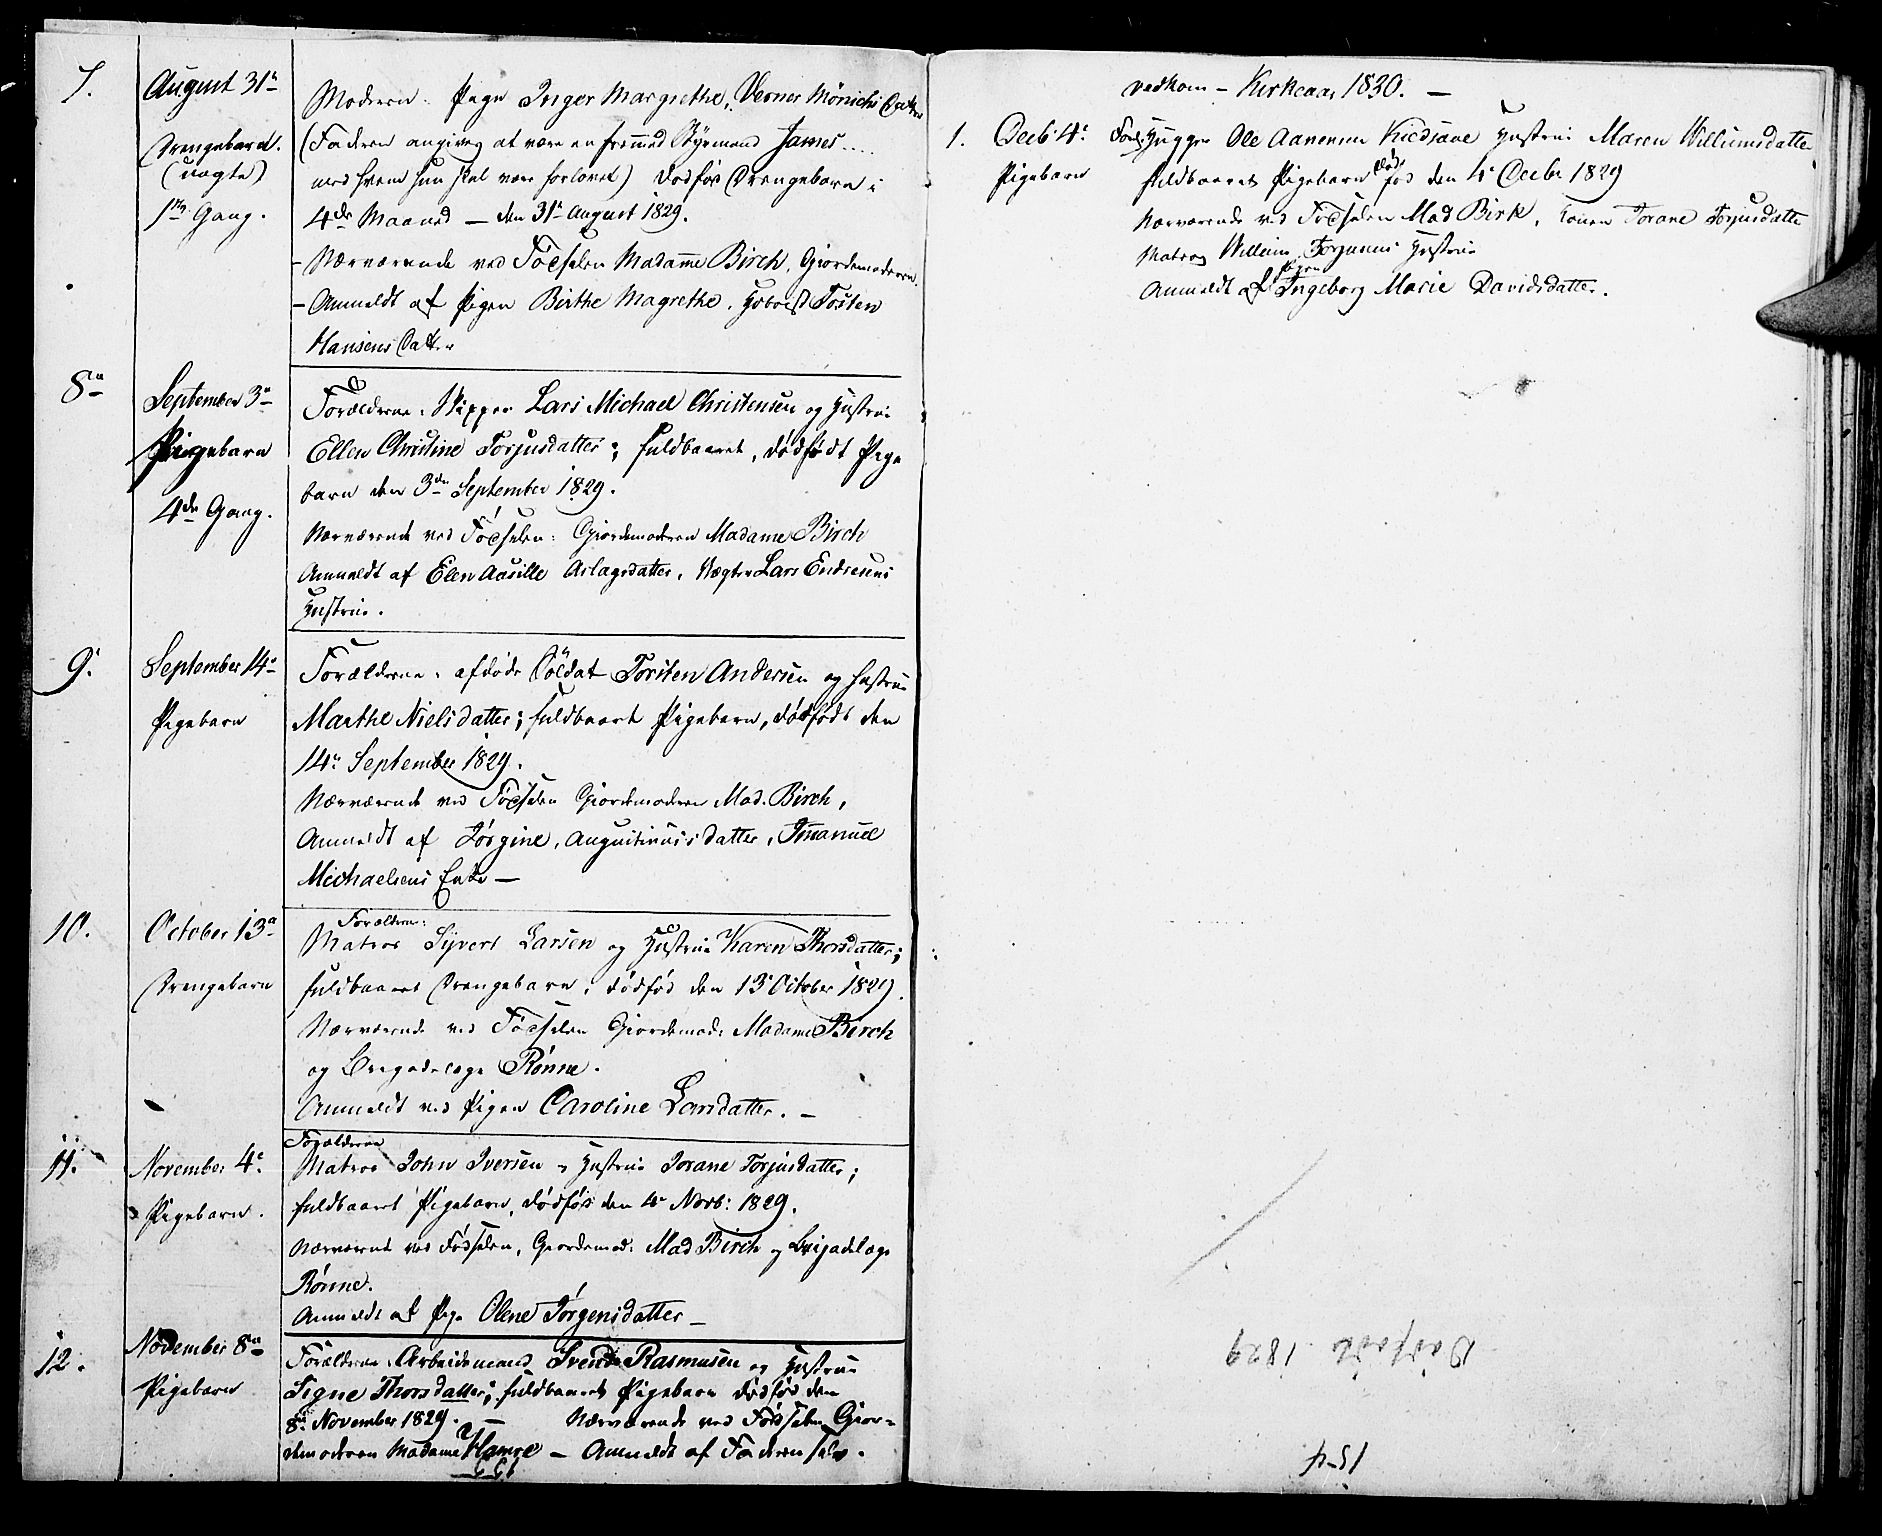 7.
August 31te
Drengebarn.
(uægte)
1ste Gang.
Moderen: Pige Inger Margrethe, Verner Mönichs Datter
(Faderen angives at være en fremmed Styrmand James ....
med hvem hun skal være forlovet) Dödfös Drengebarn i
4de Maaned – den 31te August 1829.
– Nærværende ved Födselen Madame Birch, Giordemoderen.
– Anmeldt af Pigen Birthe Magrethe, Tosten
Hansens Datter
8de
September 3de
Pigebarn
4de Gang.
Forældrene: Skipper Lars Michael Christensen og Hustrue
Ellen Christine Torjusdatter; fuldbaaret, dödfödt Pige
barn den 3die September 1829.
Nærværende ved Födselen: Giordemoderen Madame Birch
Anmeldt af Elen Aasille Aslagsdatter, Vægter Lars Endresens
Hustrue.
9.
September 14de
Pigebarn
Forældrene: afdöde Soldat Torsten Andersen og Hustrue
Marthe Nielsdatter; fuldbaaret Pigebarn, dödfödt den
14de September 1829.
Nærværende ved Födselen Giordemoderen Mad. Birch,
Anmeldt af Jörgine, Augustinusdatter, Immanuel
Michaelsens Enke –
10.
October 13de
Drengebarn
Forældrene:
Matros Syvert Larsen og Hustrue Karen Thorsdatter;
fuldbaaret Drengebarn, dödfös den 13 October 1829.
Nærværende ved Födselen Giordemod: Madame Birch
og Brigadelæge Rönne.
Anmeldt ved Pigen Caroline Larsdatter. –
11.
November 4de
Pigebarn.
Forældrene
Matros John Iversen og Hustrue Jorane Torjusdatter;
fuldbaaret Pigebarn, dödfös den 4de Novb: 1829.
Nærværende ved Födselen, Giordemod: Mad Birch og Brigadelæge
Rönne.
Anmeldt af Pige Olene Jörgensdatter –
12.
November 8de
Pigebarn
Forældrene: Arbeidsmand Svend Rasmusen og Hustrue
Signe Thorsdatter; fuldbaaret Pigebarn dödfös den
8de November 1829. – Nærværende ved Födselen Gior=
demoderen Madame Hamre – Anmeldt af Faderen selv.
vedkom – Kirkeaar 1830. –
1.
Decb: 4de
Pigebarn
Forel: Hugger Ole Aanensen Hustrue Maren Williumsdatter
fuldbaaret Pigebarn död fös den 4de Decbr 1829
Nærværende ved Födselen Mad Birk, Konen Jorane Torjusdatter
Matros Willium Torjusens Hustrue
Anmeldt af Pigen Ingeborg Marie Davidsdatter.
Dödfödte 1829